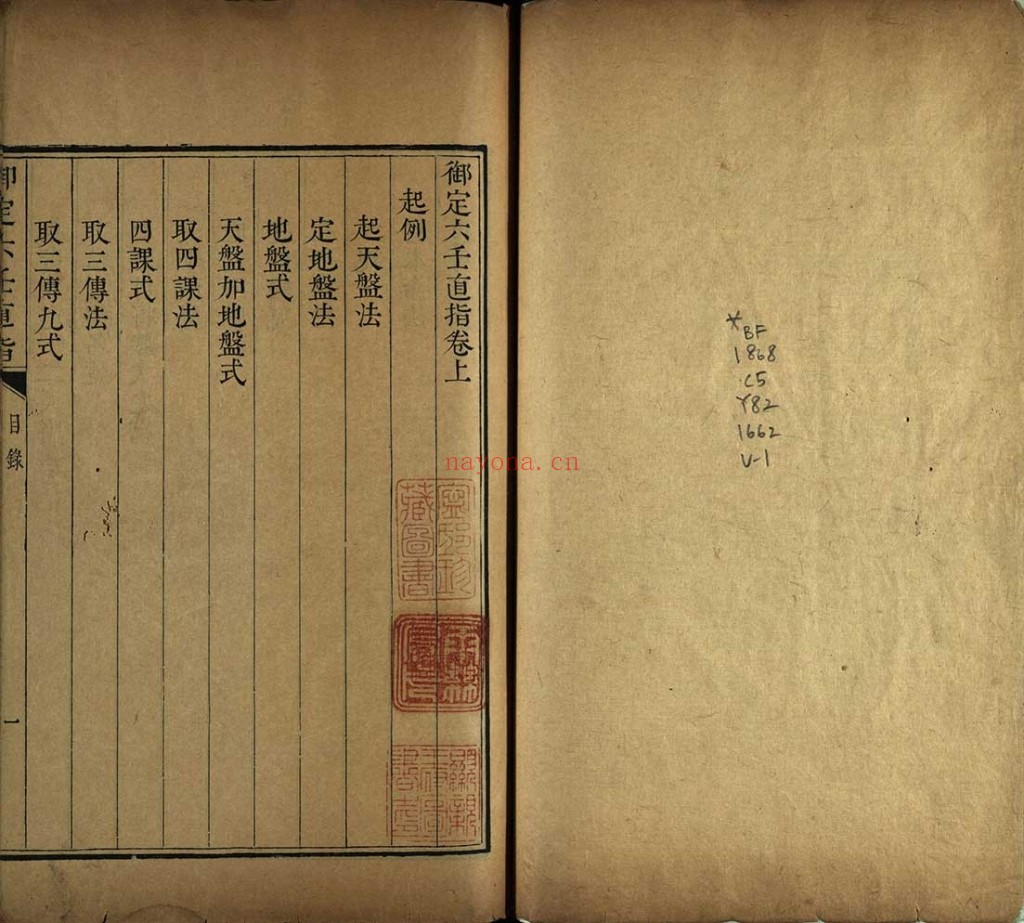 御定六壬直指卷上
起例
起天盤法
定地盤法
地盤式
天盤加地盤式
取四課法
四課式
取三傳法
取三傳九式
御定六壬直指
目錄
一
藏圖書
*BF
1868
.C5
Y82
1662
V-1
nayona.cn